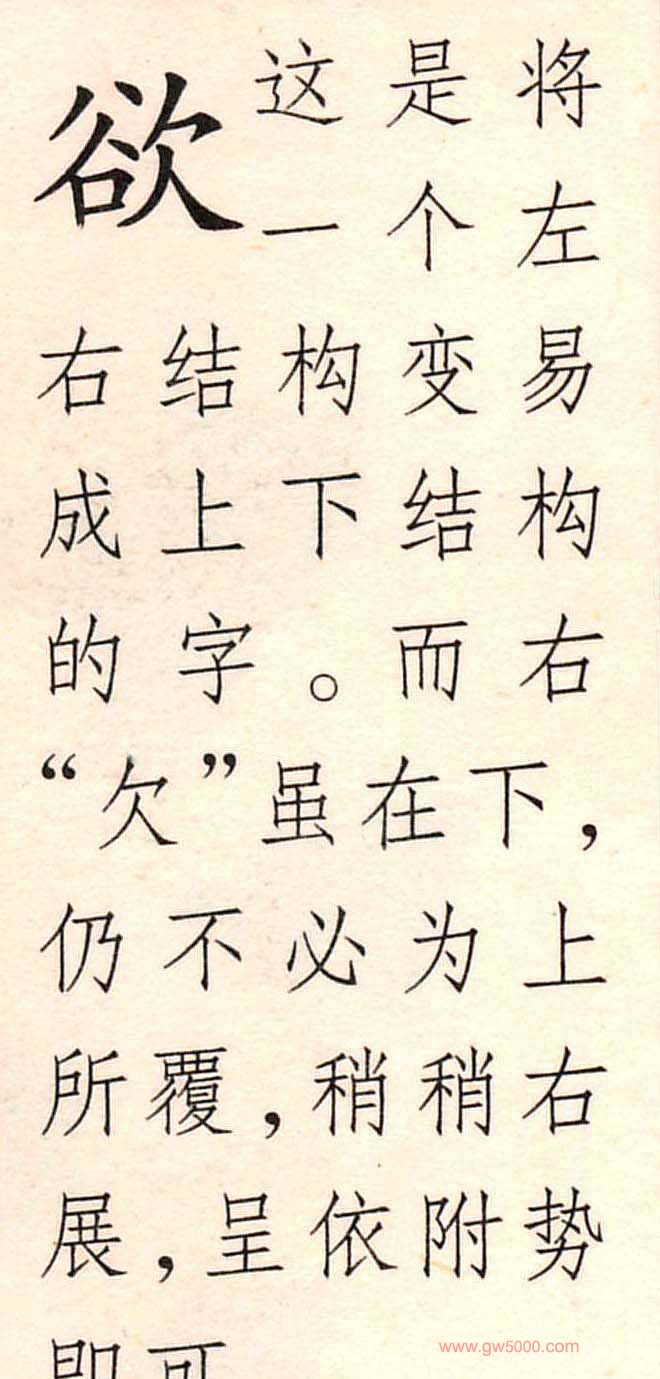 欲
这是将
一个左
右结构变易
成上下结构
的字。而右
“欠”虽在下，
仍不必为上
所覆，稍稍右
展，呈依附势
即可
www.gw5000.com